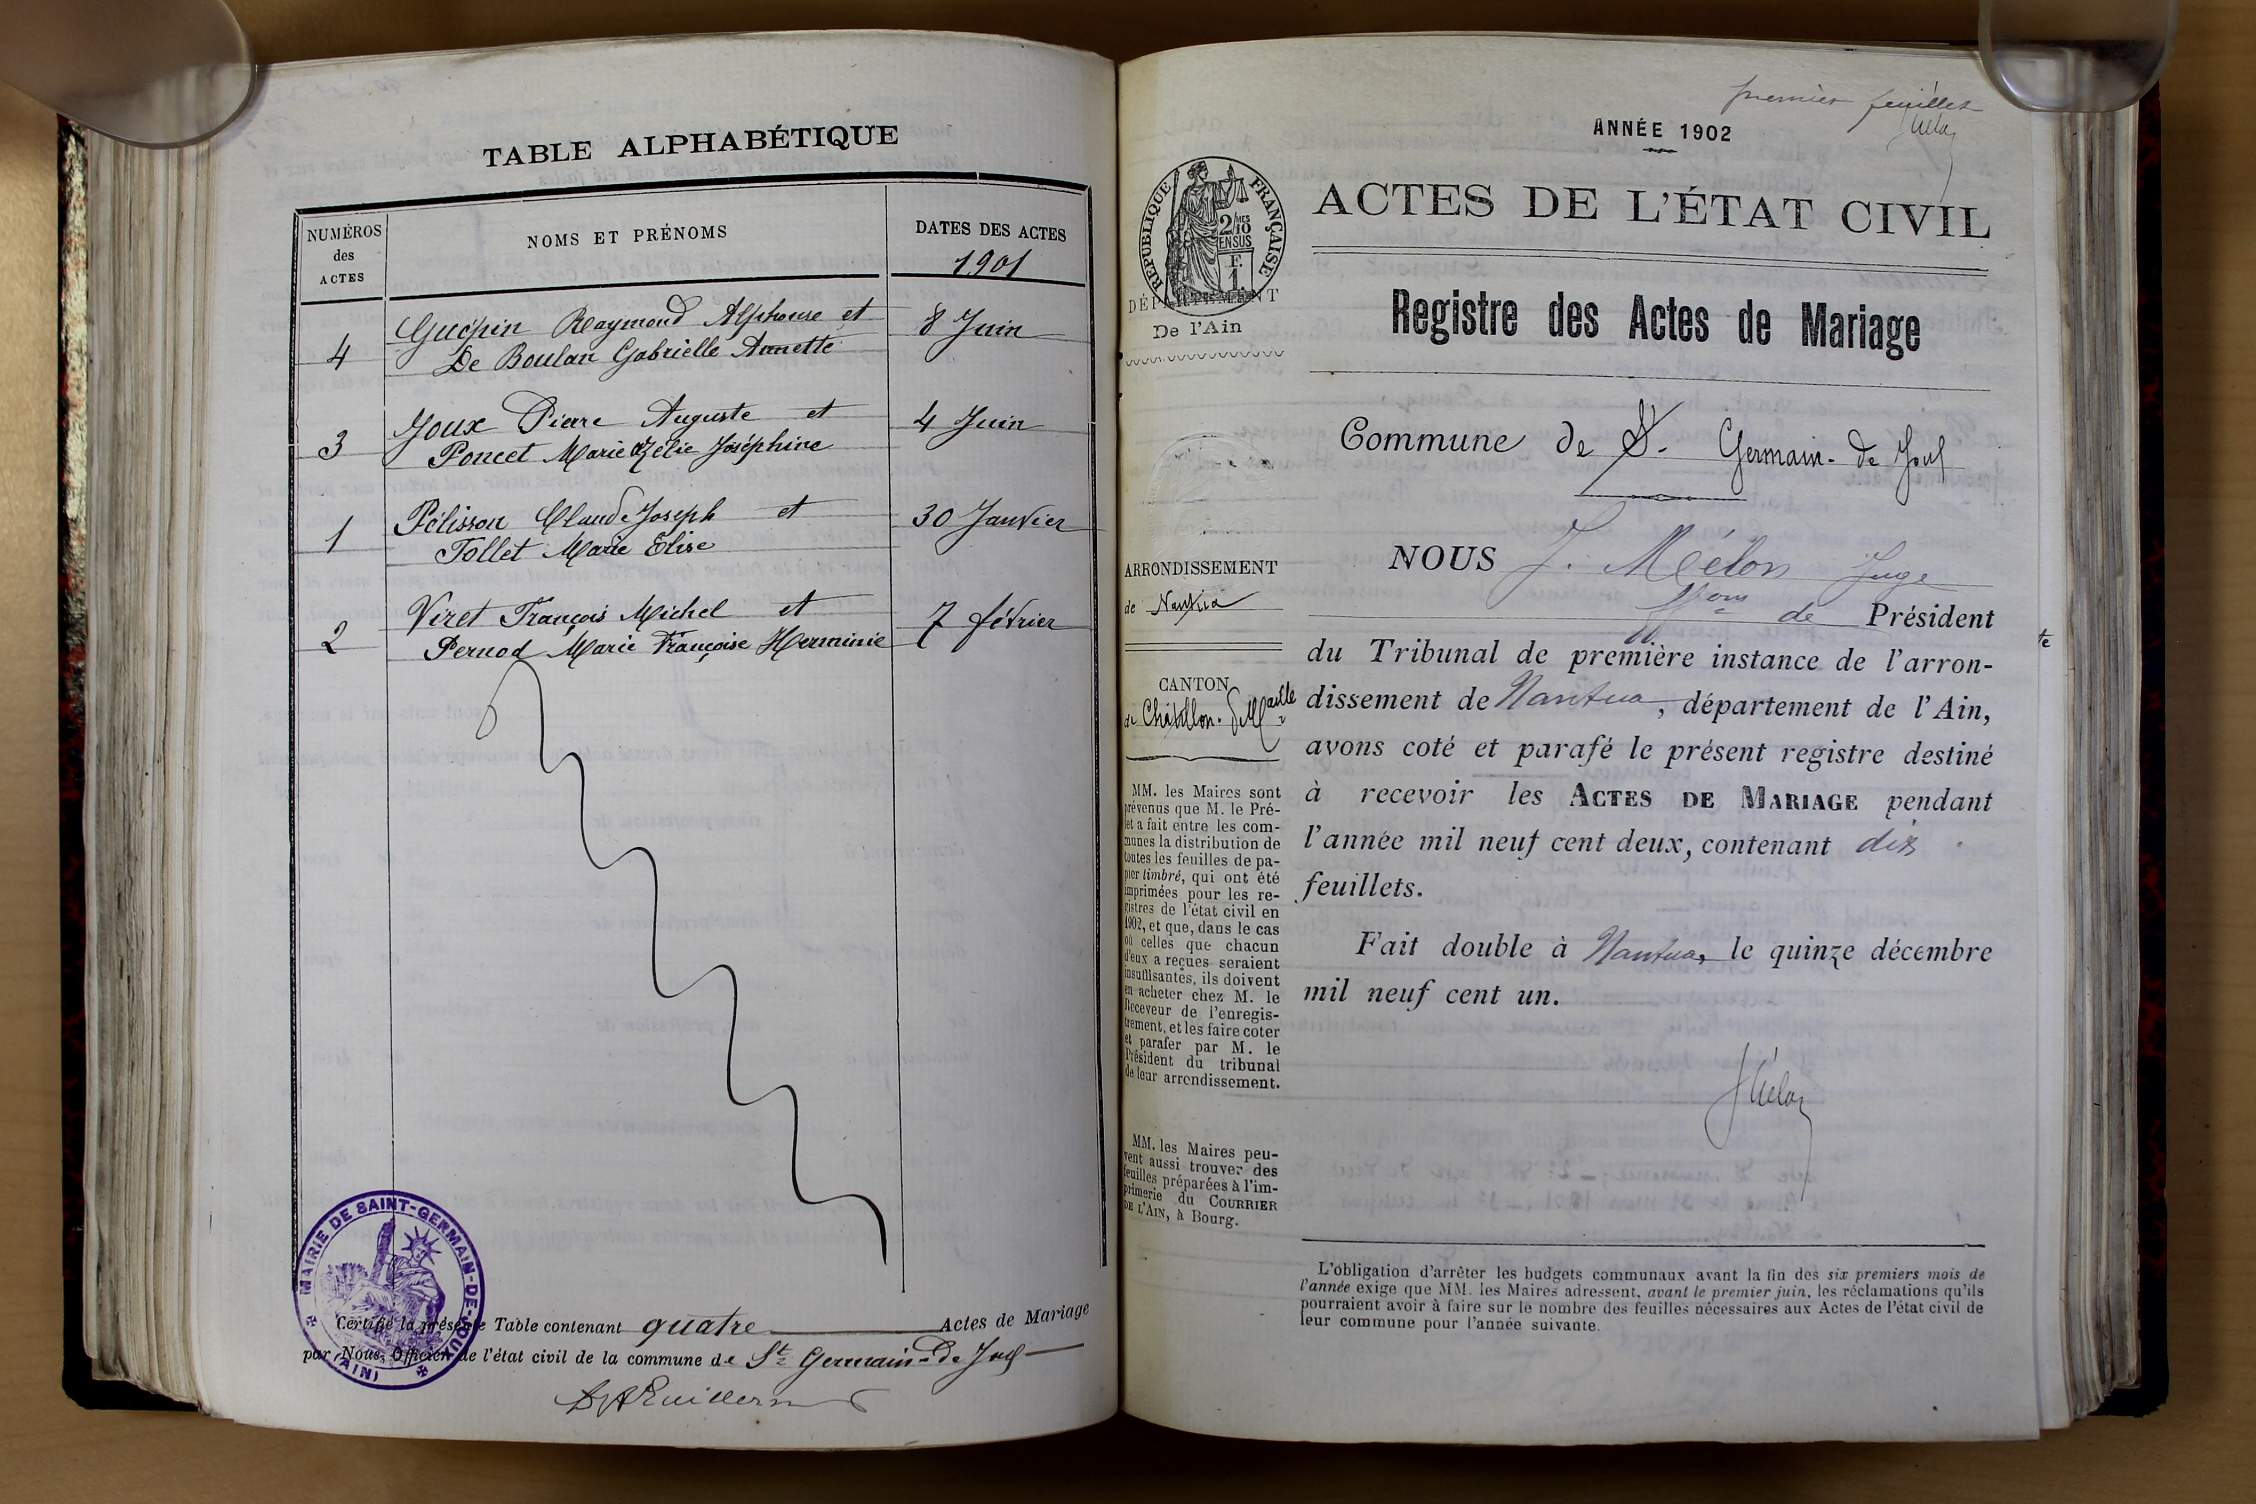 TABLE ALPHABÉTIQUE
NUMÉROS
des
ACTES
NOMS ET PRÉNOMS
DATES DES ACTES
1901
4
Guépin Raymond Alphonse et
De Boulan Gabrielle Annette
8 Juin
3
Joux Pierre Auguste et
Poncet Marie Azélie Joséphine
4 Juin
1
Pélisson Claude Joseph et
Tollet Marie Elise
30 Janvier
2
Viret François Michel et
Pernod Marie Françoise Herminie
7 février
MAIRIE DE SAINT-GERMAIN-DE-JOUX
(AIN)
Certifié la présente Table contenant quatre Actes de Mariage
par Nous, Officier de l'état civil de la commune de St Germain-de Joux
premier feuillet
ANNÉE 1902
RÉPUBLIQUE FRANÇAISE
2/10
MES
EN SUS
F.
1.
ACTES DE L'ÉTAT CIVIL
DÉPARTEMENT
De l'Ain
Registre des Actes de Mariage
Commune de St. Germain-de Joux
ARRONDISSEMENT
de Nantua
CANTON
de Châtillon-de Michaille
MM. les Maires sont
prévenus que M. le Pré-
fet a fait entre les com-
munes la distribution de
toutes les feuilles de pa-
pier timbré, qui ont été
imprimées pour les re-
gistres de l'état civil en
1902, et que, dans le cas
où celles que chacun
d'eux a reçues seraient
insuffisantes, ils doivent
en acheter chez M. le
Receveur de l'enregis-
trement, et les faire coter
et parafer par M. le
Président du tribunal
de leur arrondissement.
MM. les Maires peu-
vent aussi trouver des
feuilles préparées à l'im-
primerie du COURRIER
DE L'AIN, à Bourg.
NOUS J. Mélon Juge
de Président
du Tribunal de première instance de l'arron-
dissement de Nantua, département de l'Ain,
avons coté et parafé le présent registre destiné
à recevoir les ACTES DE MARIAGE pendant
l'année mil neuf cent deux, contenant dix
feuillets.
Fait double à Nantua, le quinze décembre
mil neuf cent un.
L'obligation d'arrêter les budgets communaux avant la fin des six premiers mois de
l'année exige que MM. les Maires adressent, avant le premier juin, les réclamations qu'ils
pourraient avoir à faire sur le nombre des feuilles nécessaires aux Actes de l'état civil de
leur commune pour l'année suivante.
te